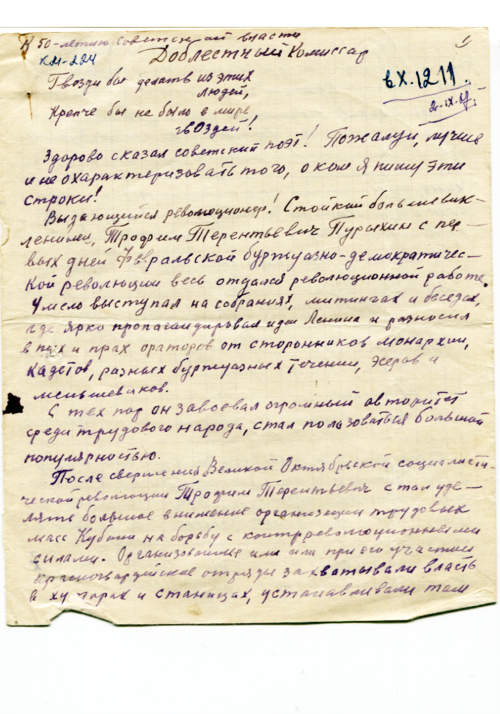 К 50-летию Советской власти
1
КМ-224
Доблестный Комиссар
Гвозди бы делать из этих
людей,
вх. 1211
Крепче бы не было в мире
гвоздей!
Здорово сказал советский поэт! Пожалуй, лучше
и не охарактеризовать того, о ком я пишу эти
строки!
Выдающийся революционер! Стойкий большевик-
ленинец, Трофим Терентьевич Пурыхин с пер-
вых дней Февральской буржуазно-демократичес-
кой революции весь отдался революционной работе.
Умело выступал на собраниях, митингах и беседах,
где ярко пропагандировал идеи Ленина и разносил
в пух и прах ораторов от сторонников монархии,
кадетов, разных буржуазных течений, эсеров и
меньшевиков.
С тех пор он завоевал огромный авторитет
среди трудового народа, стал пользоваться большой
популярностью.
После свершения Великой Октябрьской социалисти-
ческой революции Трофим Терентьевич стал уде-
лять большое внимание организации трудовых
масс Кубани на борьбу с контрреволюционными
силами. Организованные им или при его участии
красногвардейские отряды захватывали власть
в хуторах и станицах, устанавливали там